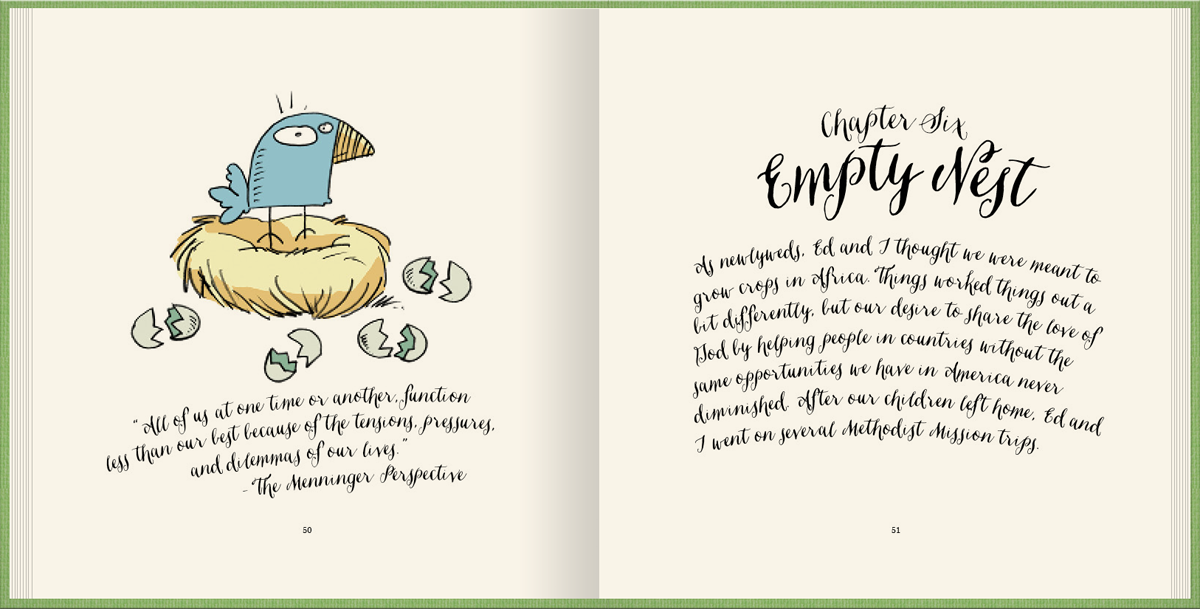 "All of us at one time or another, function
less than our best because of the tensions, pressures,
and dilemmas of our lives."
- The Menninger Perspective
50
Chapter Six
Empty Nest
As newlyweds, Ed and I thought we were meant to
grow crops in Africa. Things worked things out a
bit differently, but our desire to share the love of
God by helping people in countries without the
same opportunities we have in America never
diminished. After our children left home, Ed and
I went on several Methodist Mission trips.
51